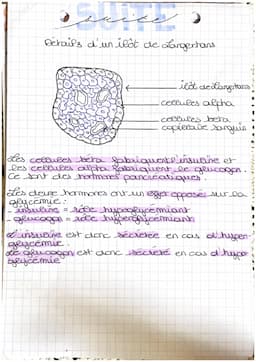 SUITE
suite
Détails d'un îlot de Langerhans
îlot de Langerhans
cellules alpha
cellules beta
capillaire sanguin
Les cellules beta fabriquent l'insuline et
les cellules alpha fabriquent le glucagon.
Ce sont des hormones pancréatiques.
Les deux hormones ont un effet opposé sur la
glycémie:
- insuline = rôle hypoglycémiant
- glucagon = rôle hyperglycémiant
L'insuline est donc sécrétée en cas d'hyper-
glycémie.
Le glucagon est donc sécrété en cas d'hypo-
glycémie